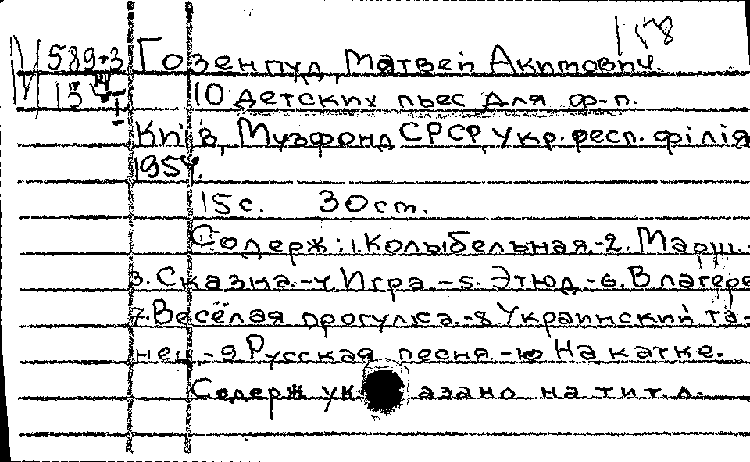 158
М 589-3 Гозенпуд, Матвей Акимович.
15 4 10 детских пьес для ф-п.
Київ, Музфонд СРСР, Укр. респ. філія
1954.
15 с. 30 см.
Содерж: 1. Колыбельная.-2. Марш.-
3. Сказка.-4. Игра.-5. Этюд.-6. В лагере
7. Весёлая прогулка.-8. Украинский та-
нец.-9. Русская песня.-10. На катке.
Содерж указано на тит. л.